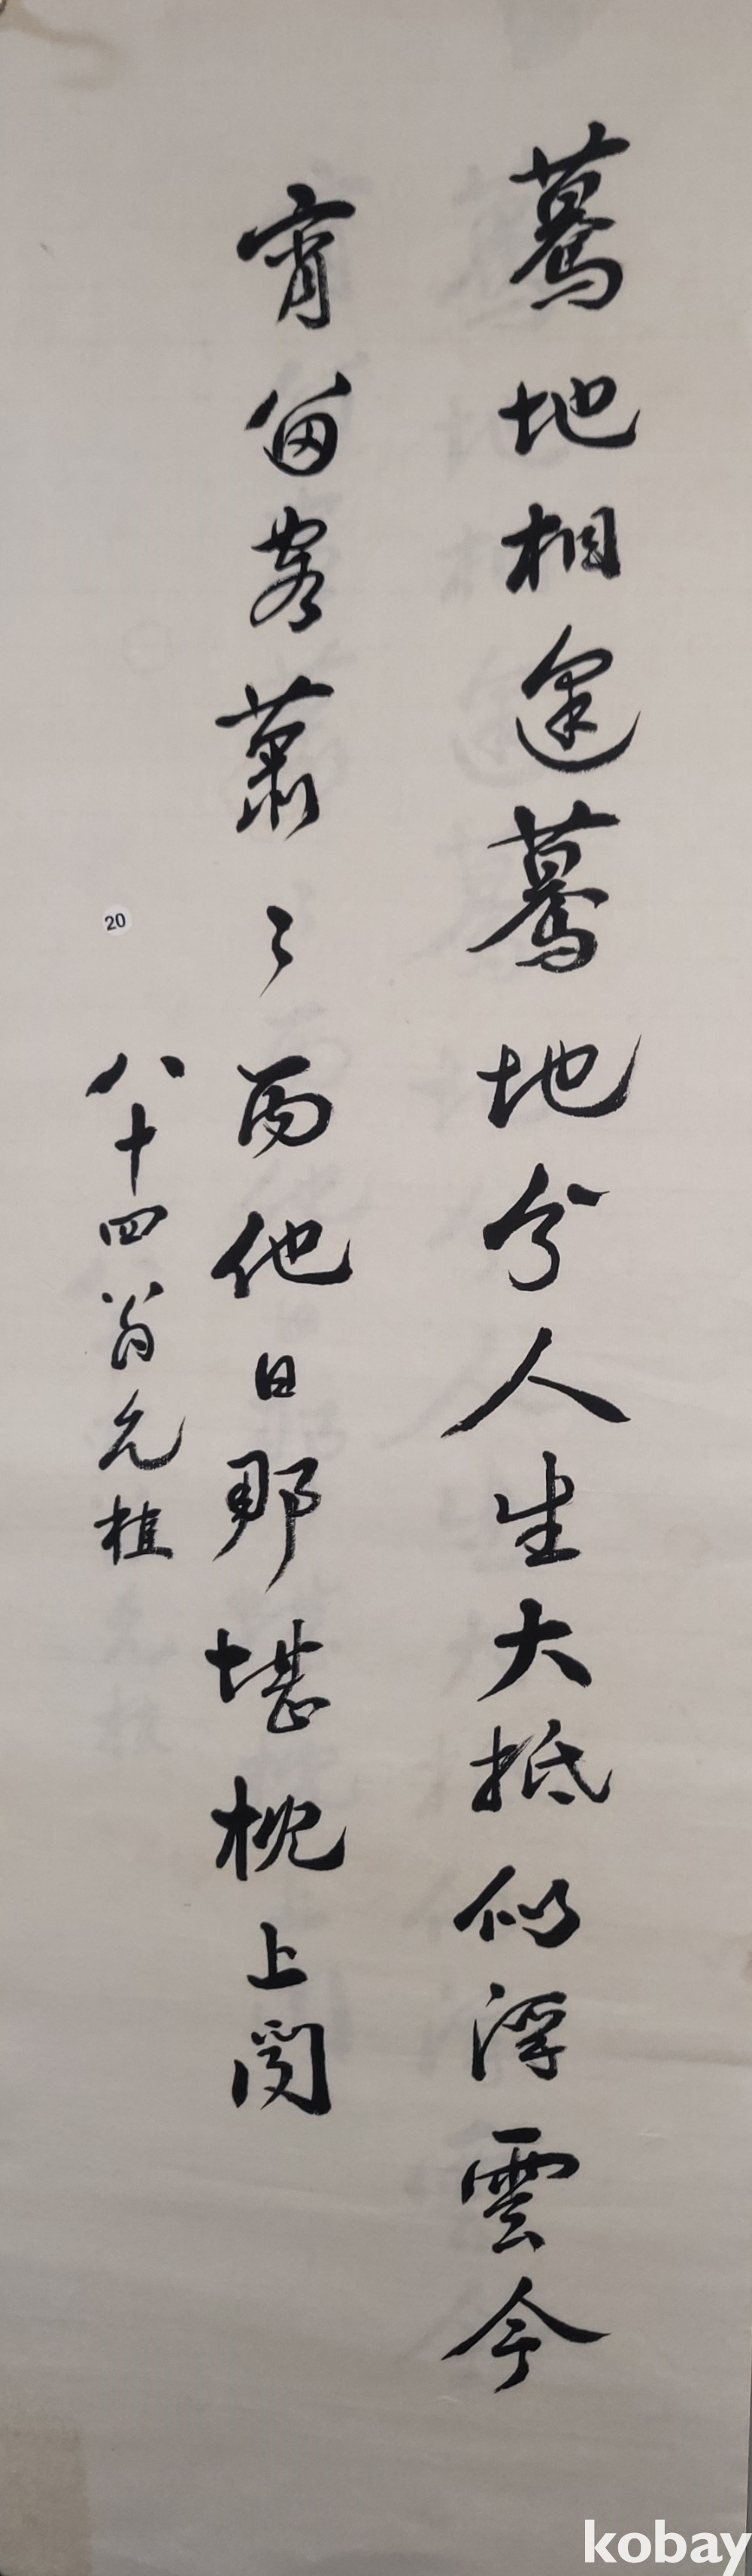 驀地相逢驀地分人生大抵似浮雲今
宵留客蕭々雨他日那堪枕上聞
八十四翁允植
20
kobay